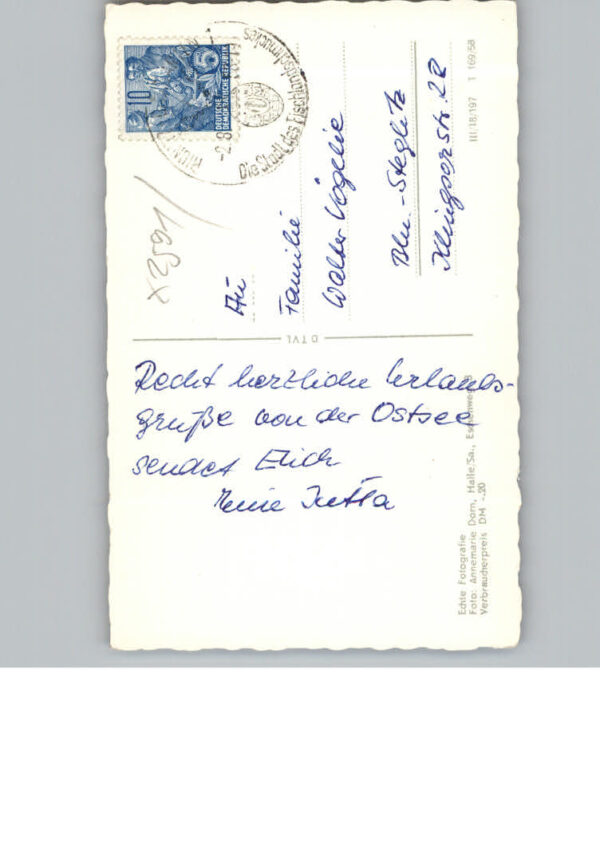 10
5
DEUTSCHE
DEMOKRATISCHE REPUBLIK
-2.8
Die Stadt des Fischlandschmuckes
x2591/
An
Familie
Walter Vögelie
Bln.-Steglitz
Klingsorstr. 22
III/18/197 1 169/58
DTVL
Recht herzliche Urlaubs-
grüße von der Ostsee
sendet Euch
Eure Jutta
Echte Fotografie
Foto: Annemarie Dorn, Halle/Sa., Eschenweg 8
Verbraucherpreis DM -.20